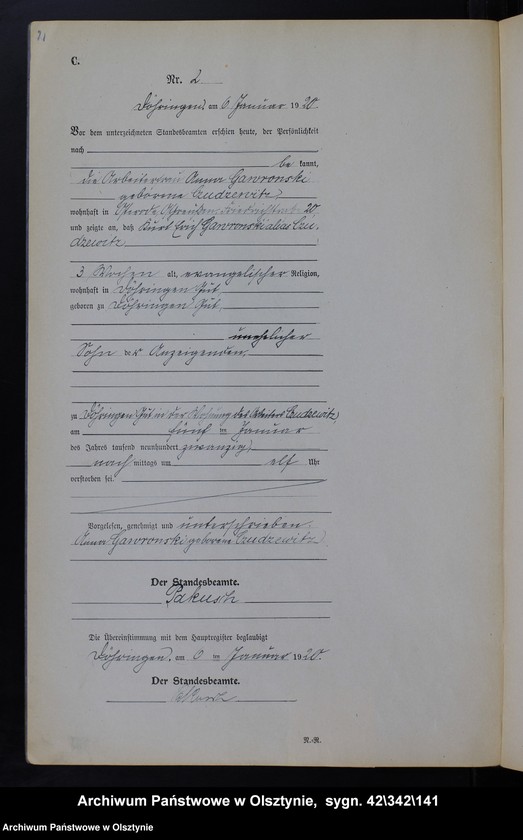 C.
Nr. 2
Döhringen, am 6 Januar 1920
Vor dem unterzeichneten Standesbeamten erschien heute, der Persönlichkeit
nach
be kannt,
die Arbeiterfrau Anna Gawronski
geborene Czudzewitz
wohnhaft in Osterode, 20
und zeigte an, daß Kurt Erich Gawronski alias Czu-
dzewitz
3 Wochen alt, evangelischer Religion,
wohnhaft in Döhringen Gut
geboren zu Döhringen Gut
unehelicher
Sohn der Anzeigenden
zu Döhringen Gut in der Wohnung des Arbeiters Czudzewitz
am fünf ten Januar
des Jahres tausend neunhundert zwanzig
nach mittags um elf Uhr
verstorben sei.
Vorgelesen, genehmigt und unterschrieben.
Anna Gawronski geborene Czudzewitz
Der Standesbeamte.
Pakusch
Die Übereinstimmung mit dem Hauptregister beglaubigt
Döhringen, am 6 ten Januar 1920.
Der Standesbeamte.
N.-R.
Archiwum Państwowe w Olsztynie, sygn. 42\342\141
Archiwum Państwowe w Olsztynie